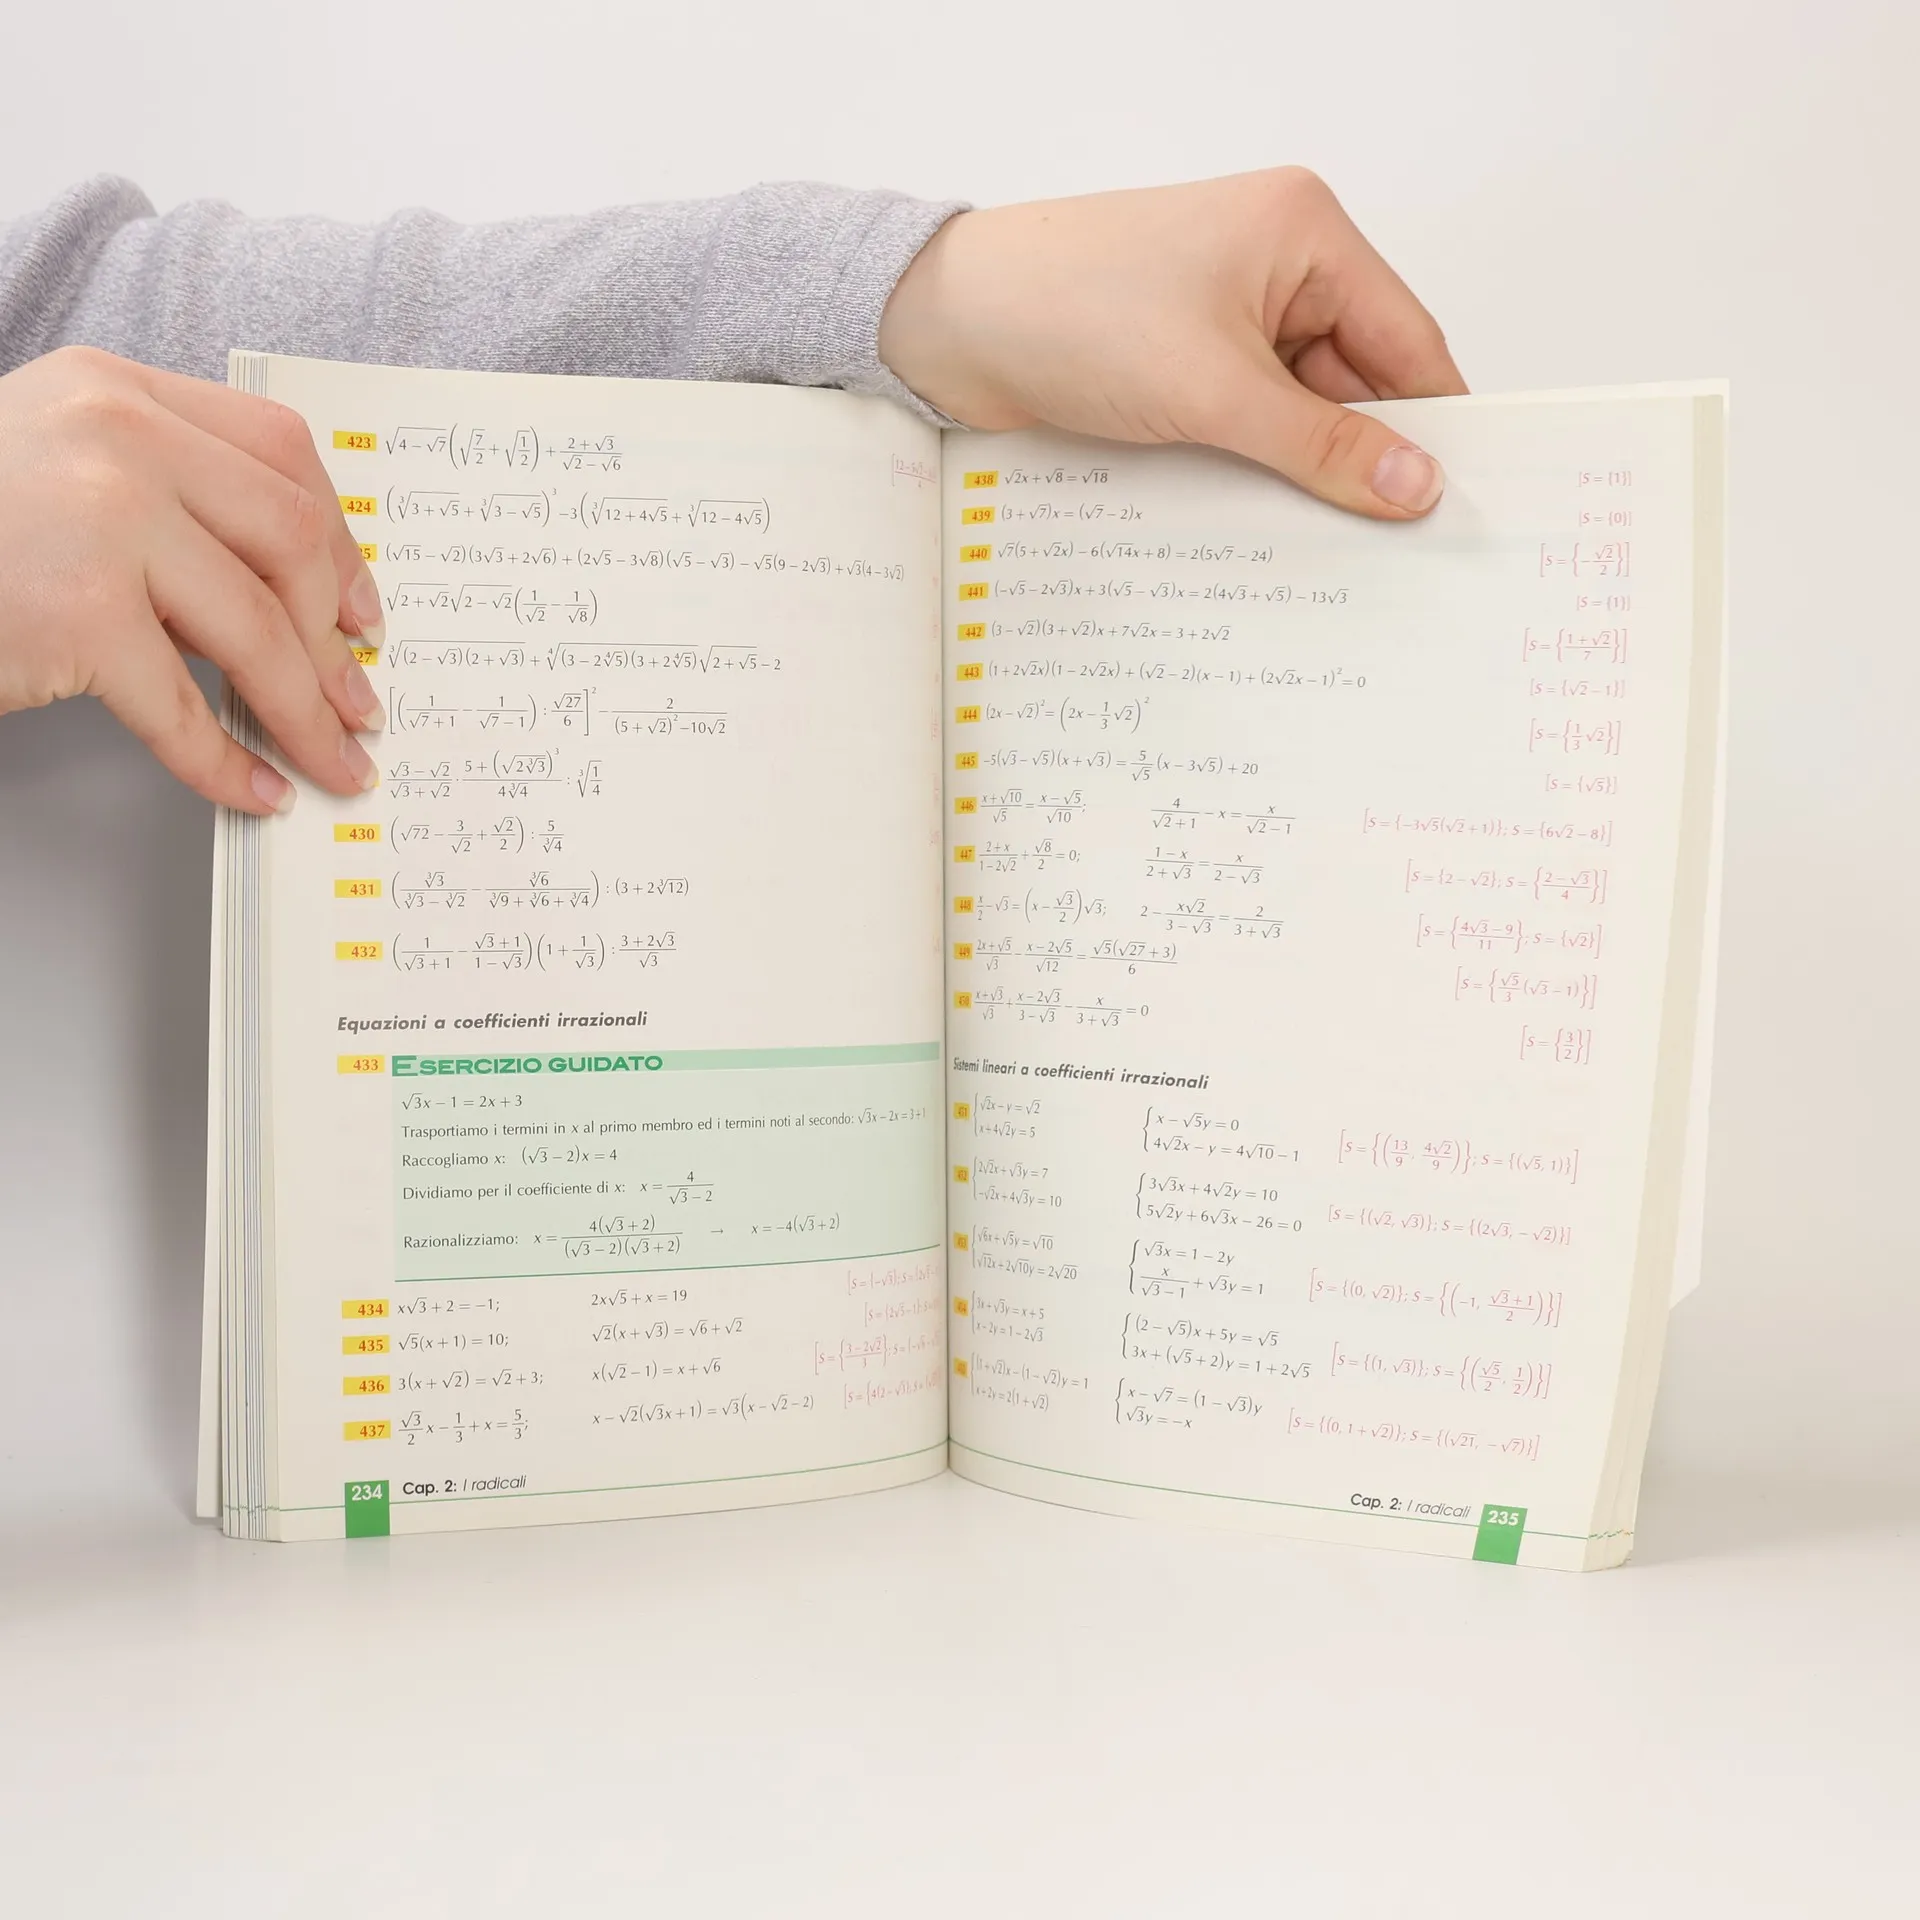 423 √(4 − √7) (√(7/2) + √(1/2)) + (2 + √3)/(√2 − √6)
424 (∛(3 + √5) + ∛(3 − √5))³ −3(∛(12 + 4√5) + ∛(12 − 4√5))
(√15 − √2)(3√3 + 2√6) + (2√5 − 3√8)(√5 − √3) − √5(9 − 2√3) + √3(4 − 3√2)
√(2 + √2) √(2 − √2) (1/√2 − 1/√8)
27 ∛((2 − √3)(2 + √3)) + ∜((3 − 2∜5)(3 + 2∜5)) √(2 + √5) − 2
[(1/(√7 + 1) − 1/(√7 − 1)) : √27/6]² − 2/((5 + √2)² −10√2)
(√3 − √2)/(√3 + √2) · (5 + (√(2∛3))³)/(4∛4) : ∛(1/4)
430 (√72 − 3/√2 + √2/2) : 5/∛4
431 (∛3/(∛3 − ∛2) − ∛6/(∛9 + ∛6 + ∛4)) : (3 + 2∛12)
432 (1/(√3 + 1) − (√3 + 1)/(1 − √3)) (1 + 1/√3) : (3 + 2√3)/√3
Equazioni a coefficienti irrazionali
433 ESERCIZIO GUIDATO
√3x − 1 = 2x + 3
Trasportiamo i termini in x al primo membro ed i termini noti al secondo: √3x − 2x = 3 + 1
Raccogliamo x: (√3 − 2)x = 4
Dividiamo per il coefficiente di x: x = 4/(√3 − 2)
Razionalizziamo: x = 4(√3 + 2)/((√3 − 2)(√3 + 2)) → x = −4(√3 + 2)
434 x√3 + 2 = −1; 2x√5 + x = 19
435 √5(x + 1) = 10; √2(x + √3) = √6 + √2
436 3(x + √2) = √2 + 3; x(√2 − 1) = x + √6
437 √3/2 x − 1/3 + x = 5/3; x − √2(√3x + 1) = √3(x − √2 − 2)
234 Cap. 2: I radicali
438 √2x + √8 = √18 [S = {1}]
439 (3 + √7)x = (√7 − 2)x [S = {0}]
440 √7(5 + √2x) − 6(√14x + 8) = 2(5√7 − 24) [S = {−√2/2}]
441 (−√5 − 2√3)x + 3(√5 − √3)x = 2(4√3 + √5) − 13√3 [S = {1}]
442 (3 − √2)(3 + √2)x + 7√2x = 3 + 2√2 [S = {(1 + √2)/7}]
443 (1 + 2√2x)(1 − 2√2x) + (√2 − 2)(x − 1) + (2√2x − 1)² = 0 [S = {√2 − 1}]
444 (2x − √2)² = (2x − 1/3 √2)² [S = {1/3 √2}]
445 −5(√3 − √5)(x + √3) = 5/√5 (x − 3√5) + 20 [S = {√5}]
446 (x + √10)/√5 = (x − √5)/√10; 4/(√2 + 1) − x = x/(√2 − 1) [S = {−3√5(√2 + 1)}; S = {6√2 − 8}]
447 (2 + x)/(1 − 2√2) + √8/2 = 0; (1 − x)/(2 + √3) = x/(2 − √3) [S = {2 − √2}; S = {(2 − √3)/4}]
448 x/2 − √3 = (x − √3/2)√3; 2 − x√2/(3 − √3) = 2/(3 + √3) [S = {(4√3 − 9)/11}; S = {√2}]
449 (2x + √5)/√3 − (x − 2√5)/√12 = √5(√27 + 3)/6 [S = {√5/3 (√3 − 1)}]
450 (x + √3)/√3 + (x − 2√3)/(3 − √3) − x/(3 + √3) = 0 [S = {3/2}]
Sistemi lineari a coefficienti irrazionali
451 {√2x − y = √2 {x − √5y = 0
x + 4√2y = 5 4√2x − y = 4√10 − 1 [S = {(13/9, 4√2/9)}; S = {(√5, 1)}]
452 {2√2x + √3y = 7 {3√3x + 4√2y = 10
−√2x + 4√3y = 10 5√2y + 6√3x − 26 = 0 [S = {(√2, √3)}; S = {(2√3, −√2)}]
453 {√6x + √5y = √10 {√3x = 1 − 2y
√12x + 2√10y = 2√20 x/(√3 − 1) + √3y = 1 [S = {(0, √2)}; S = {(−1, (√3 + 1)/2)}]
454 {3x + √3y = x + 5 {(2 − √5)x + 5y = √5
x − 2y = 1 − 2√3 3x + (√5 + 2)y = 1 + 2√5 [S = {(1, √3)}; S = {(√5/2, 1/2)}]
{(1 + √2)x − (1 − √2)y = 1 {x − √7 = (1 − √3)y
x + 2y = 2(1 + √2) √3y = −x [S = {(0, 1 + √2)}; S = {(√21, −√7)}]
Cap. 2: I radicali 235